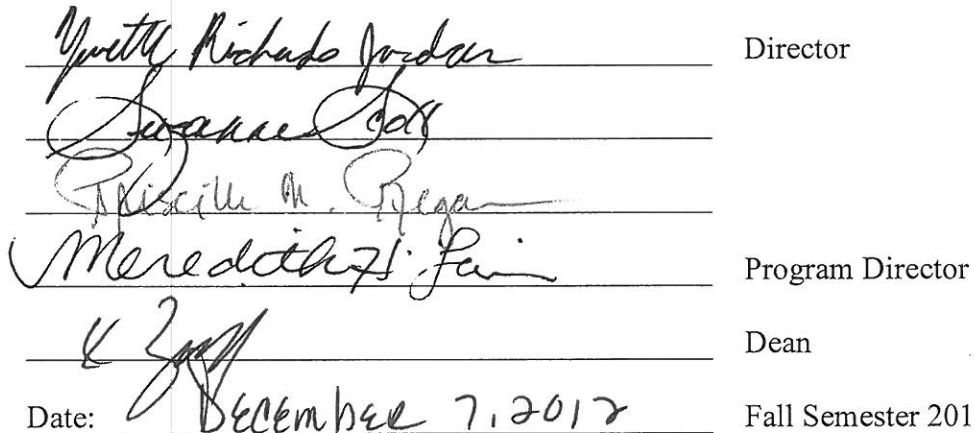 Yvette Richards Jordan Director
Suzanne Scott
Priscilla M. Regan
Meredith H. Lair Program Director
Dean
Date: DECEMBER 7, 2012 Fall Semester 201